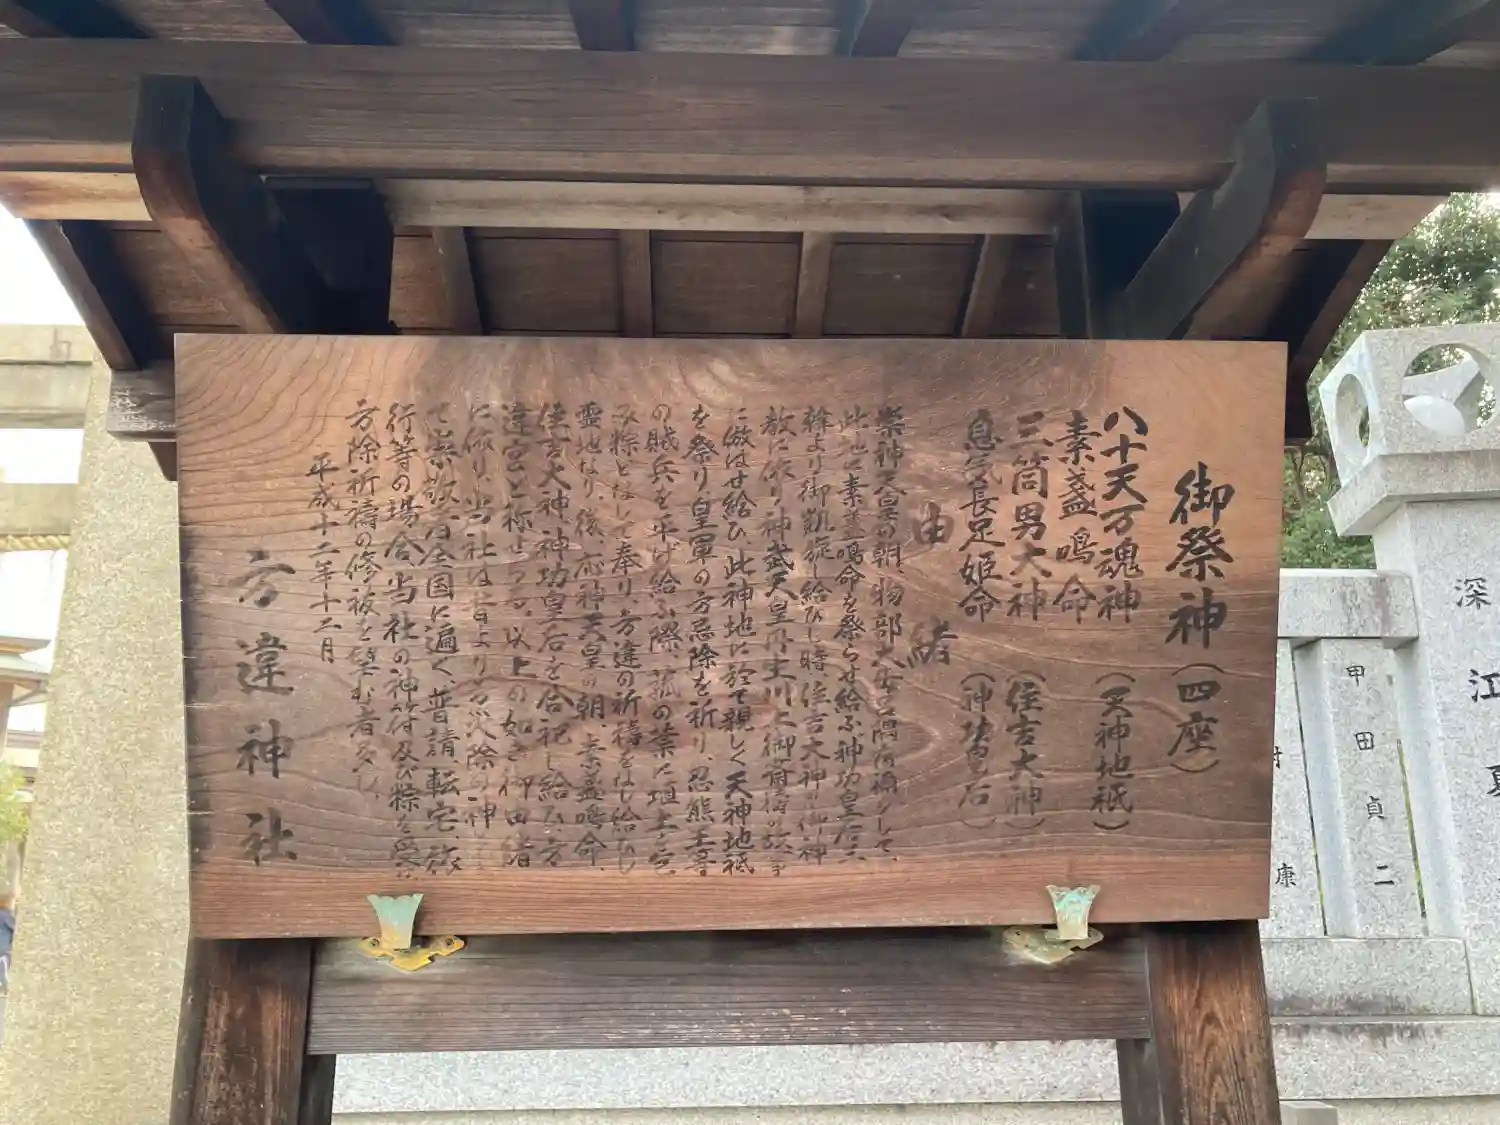 御祭神（四座）
八十天万魂神（天神地祇）
素盞鳴命
三筒男大神（住吉大神）
息気長足姫命（神功皇后）
由緒
崇神天皇の朝、物部大母呂隅足尼をして、
此地に素盞鳴命を祭らせ給ふ神功皇后三
韓より御凱旋し給ひし時、住吉大神の御神
教に依り神武天皇丹生川上御斎祷の故事
に倣はせ給ひ、此神地に於て親しく天神地祇
を祭り、皇軍の方忌除を祈り、忍熊王等
の賊兵を平げ給ふ際、菰の葉に埴土を包
み粽となして奉り、方違の祈祷をなし給ひし
霊地なり、後、応神天皇の朝、素盞鳴命、
住吉大神、神功皇后を合祀し給ひ、方
違宮と称せらる、以上の如き御由緒
に依り、当社は昔より方災除の神
て崇敬者全国に遍く、普請、転宅、旅
行等の場合、当社の神符及び粽を受け
方除祈祷の修祓を望む者多し、
平成十二年十二月
方違神社
深江
夏
甲田貞二
康